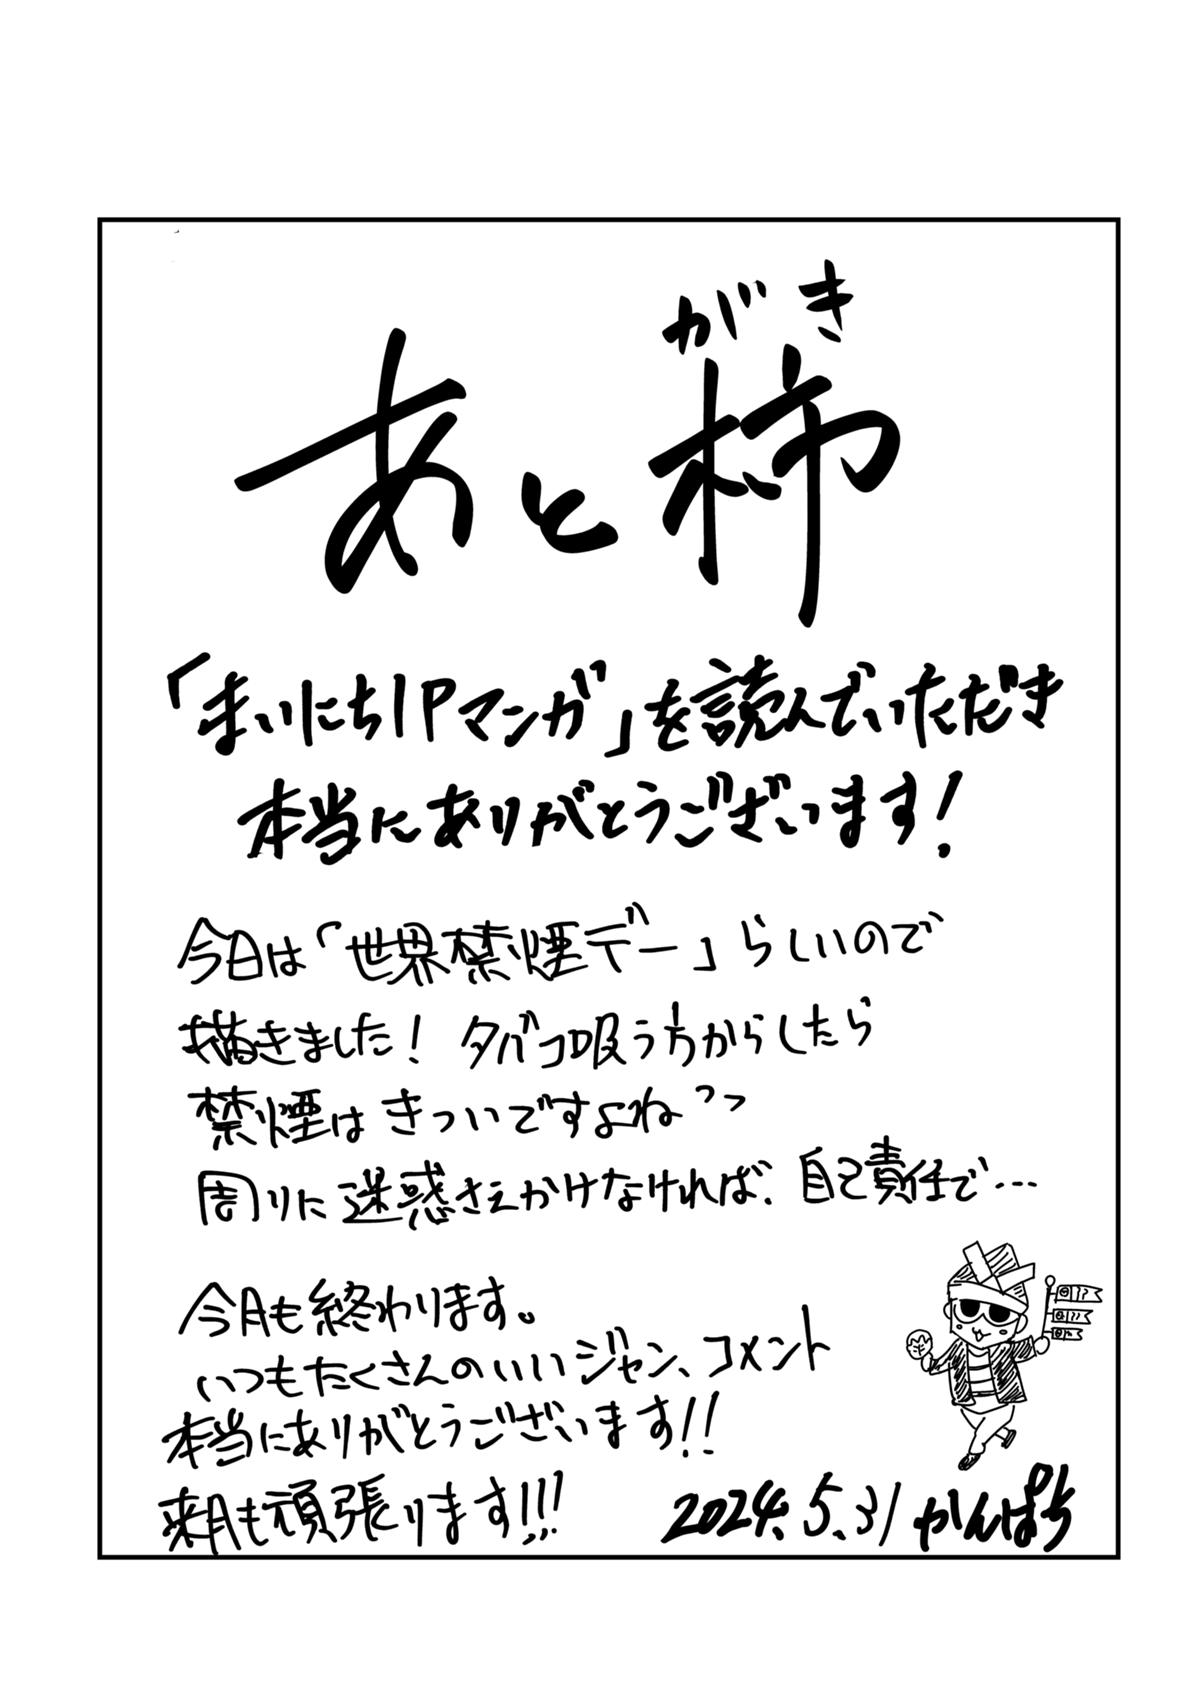 がき
あと柿
「まいにち1Pマンガ」を読んでいただき
本当にありがとうございます!
今日は「世界禁煙デー」らしいので
描きました! タバコ吸う方からしたら
禁煙はきついですよね
周りに迷惑さえかけなければ、自己責任で…
今月も終わります。
いつもたくさんのいいジャン、コメント
本当にありがとうございます!!
来月も頑張ります!!!
2024.5.31 かんぱち